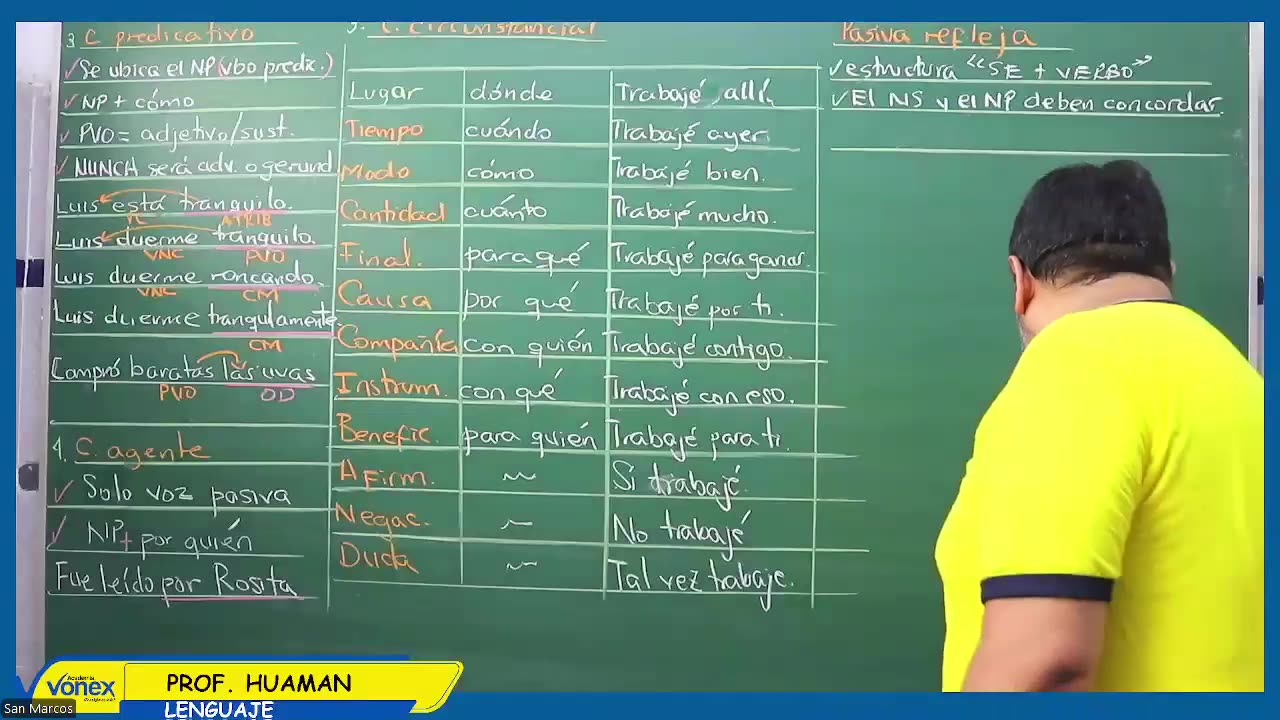 3 C predicativo
✓Se ubica el NP(vbo predic.)
✓NP + cómo
✓PVO = adjetivo/sust.
✓NUNCA será adv. o gerund
Luis está tranquilo.
VC ATRIB
Luis duerme tranquilo.
VNC PVO
Luis duerme roncando.
VNC CM
Luis duerme tranquilamente
CM
Compró baratas las uvas
PVO OD
4. C. agente
✓ Solo voz pasiva
✓ NP + por quién
Fue leído por Rosita
5. C. circunstancial
Lugar dónde Trabajé allí.
Tiempo cuándo Trabajé ayer.
Modo cómo Trabajé bien.
Cantidad cuánto Trabajé mucho.
Final. para qué Trabajé para ganar.
Causa por qué Trabajé por ti.
Compañía con quién Trabajé contigo.
Instrum. con qué Trabajé con eso.
Benefic. para quién Trabajé para ti.
Afirm. ~ Sí trabajé.
Negac. ~ No trabajé
Duda ~ Tal vez trabaje.
Pasiva refleja
✓estructura "SE + VERBO"
✓El NS y el NP deben concordar.
Academia
vonex
PROF. HUAMAN
LENGUAJE
San Marcos